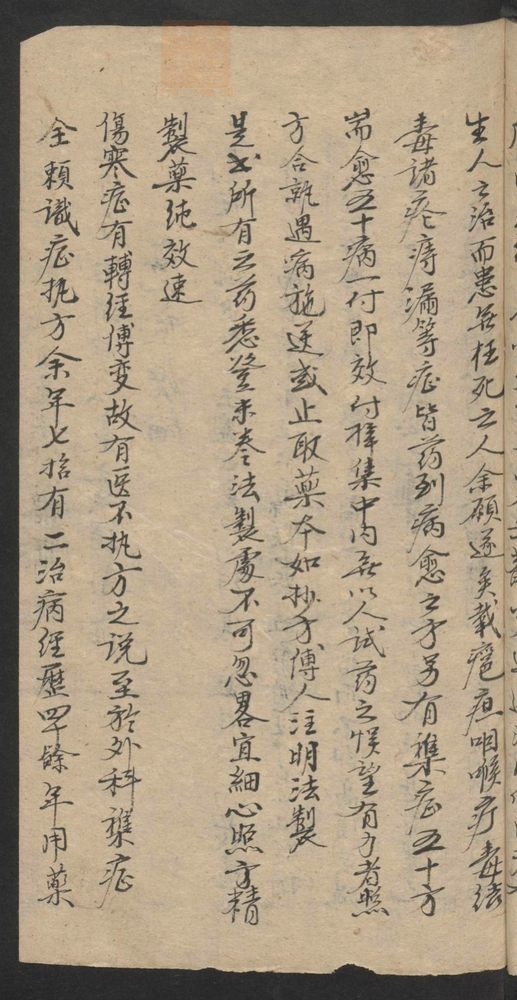 生人之治而患無枉死之人余願遂矣載㾴疽咽喉疔毒結
毒諸瘡痔漏等症皆药到病愈之方另有雜症五十方
耑愈五十病一付即效付梓集中內無以人試药之悮望有力者照
方合就遇病施送或止取藥本如抄方傳人注明法製
是書所有之药悉登未卷法製處不可忽畧宜細心照方精
製藥純效速
傷寒症有轉經傳变故有医不执方之说至於外科雜症
全賴識症执方余年七拾有二治病經歷四十餘年用藥